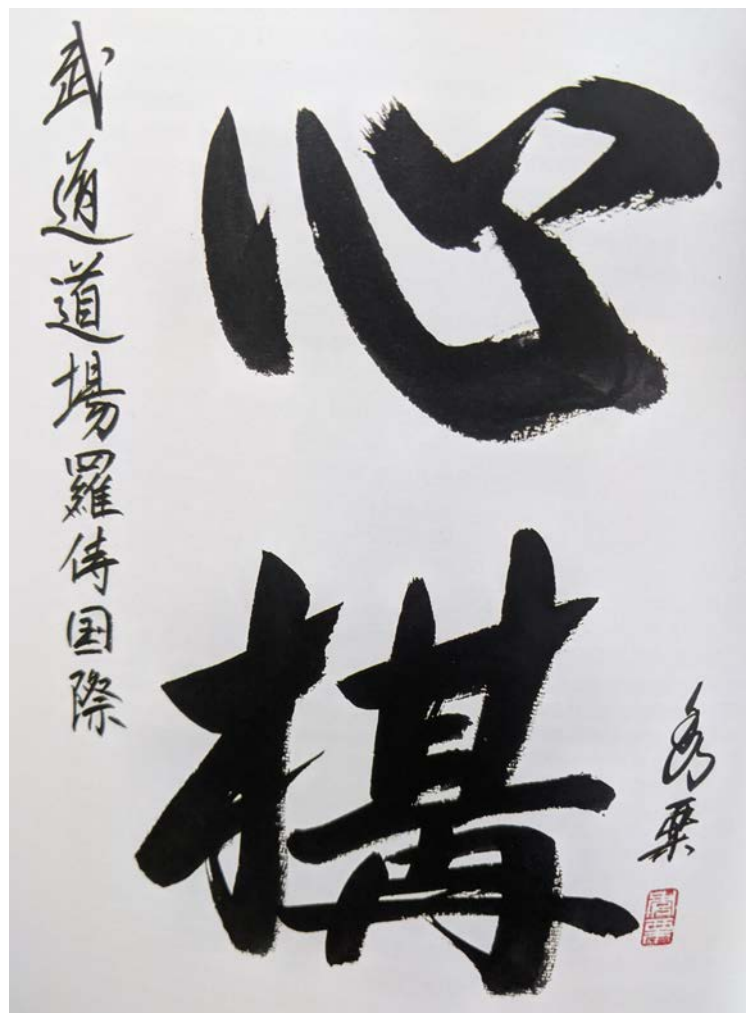 心構
武道道場羅侍国際